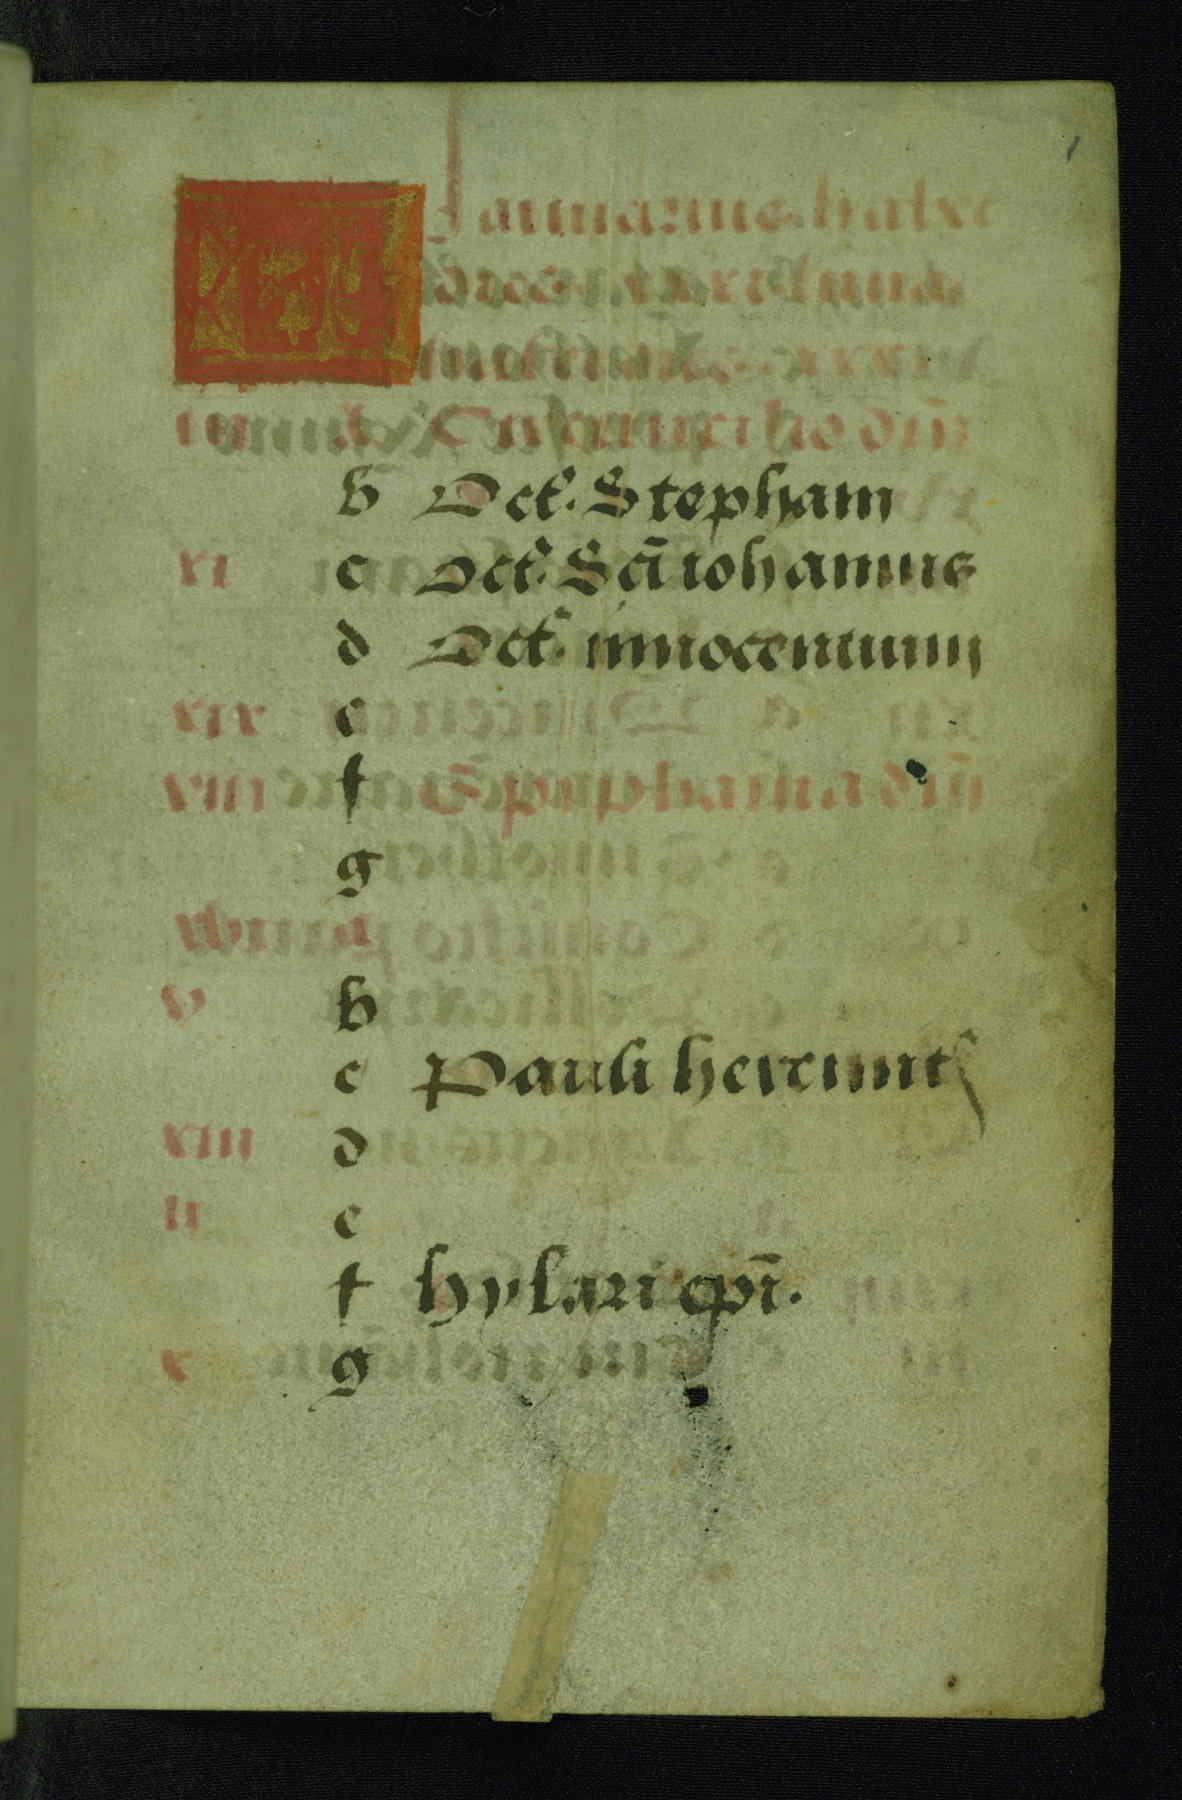 KL Januarius habet
dies xxxi luna
iii A Circumcisio dn̄i
b Oct. Stephani
xi c Oct. Scī iohannis
d Oct. innocentium
xix e
viii f Epiphania dn̄i
g
xvi A
v b
c Pauli heremit
xiii d
ii e
f hylari epī.
x g